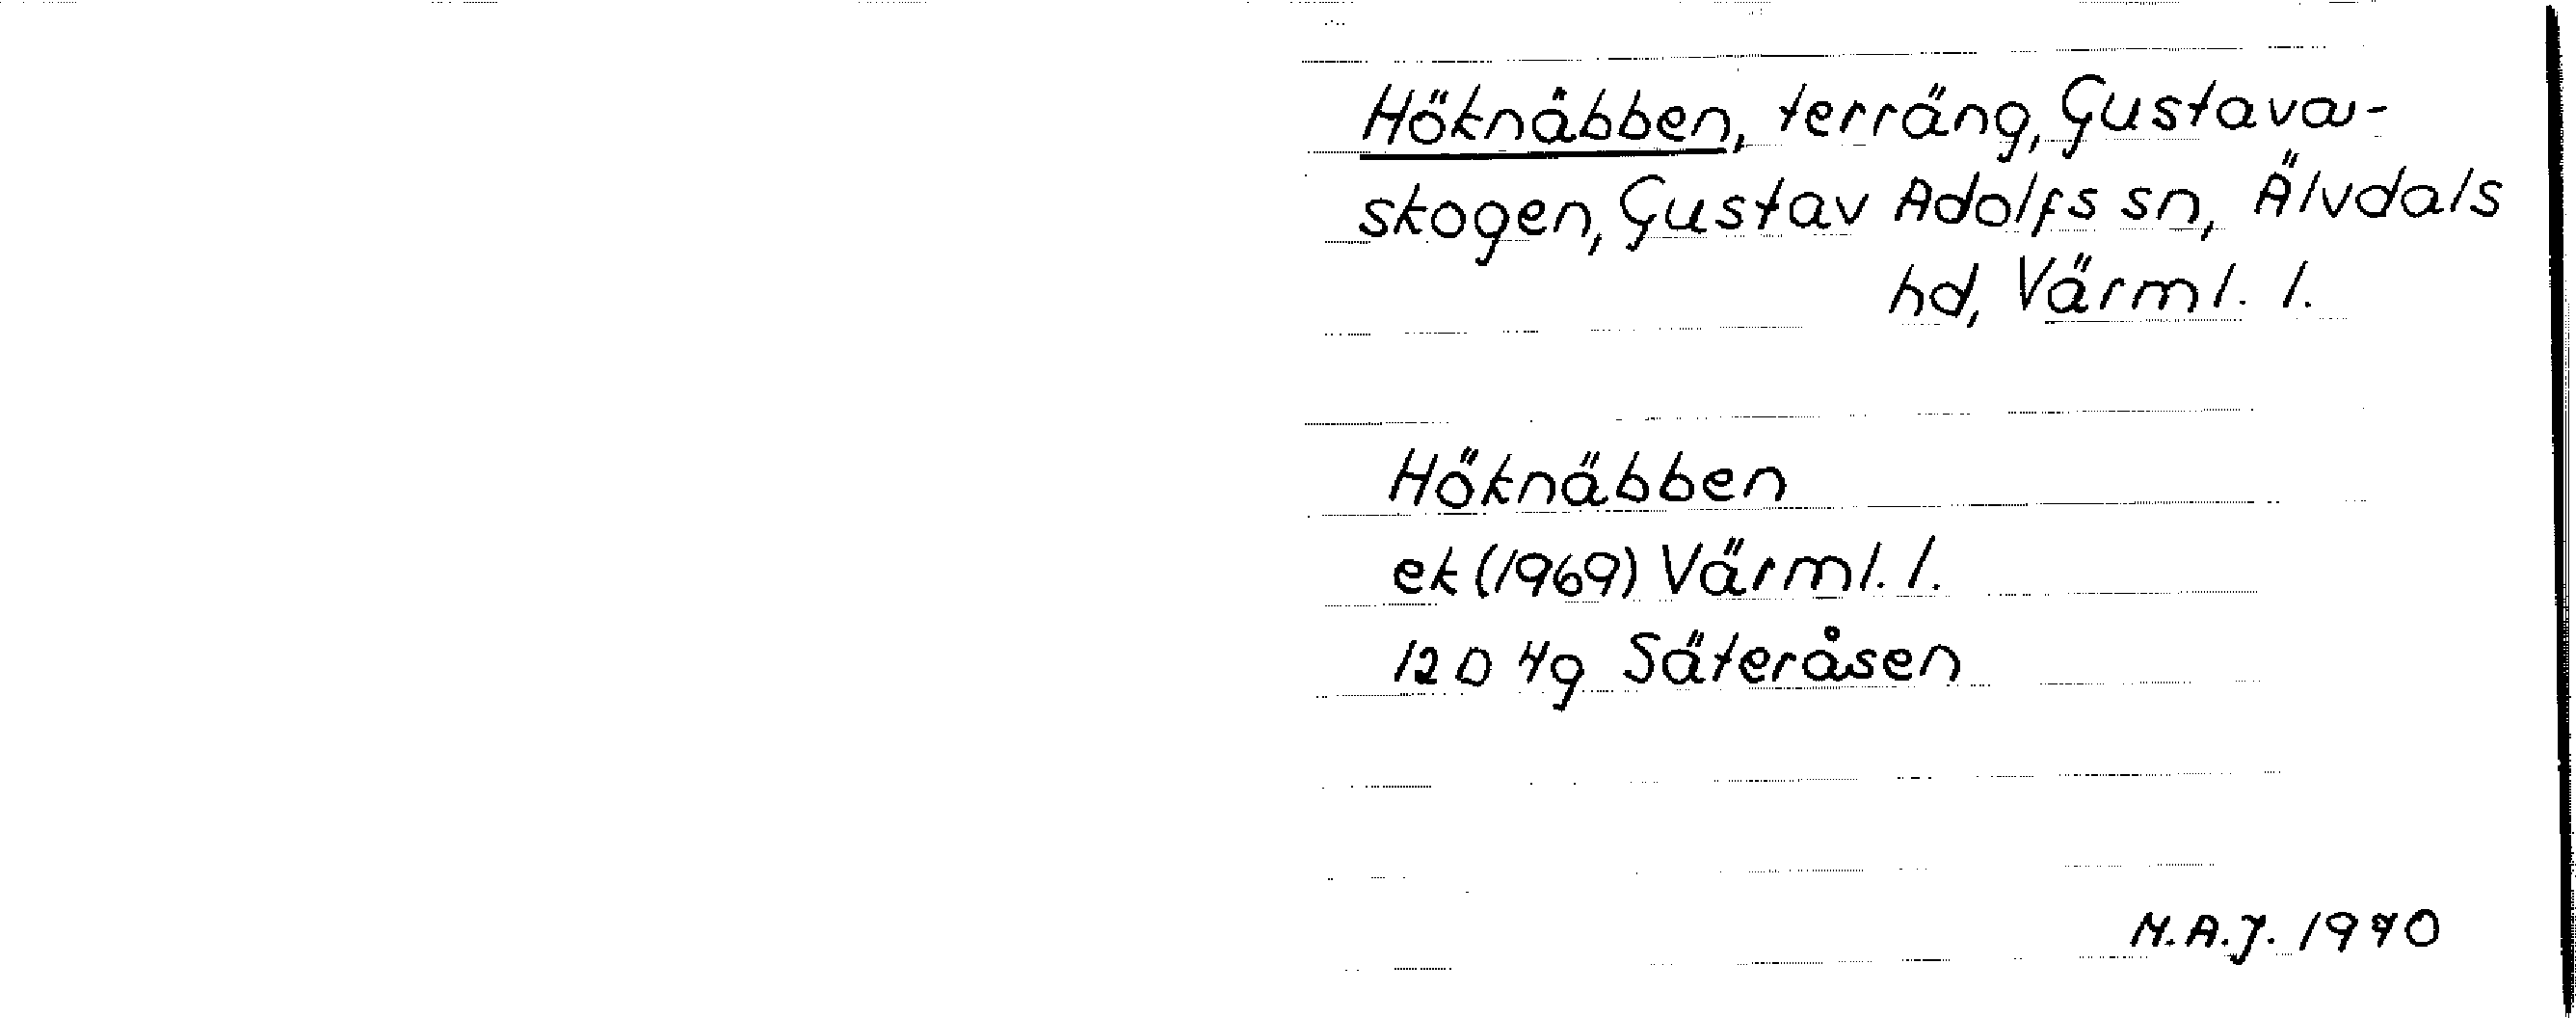 Höknäbben, terräng, Gustava-
skogen, Gustav Adolfs sn, Älvdals
hd, Värml. l.
Höknäbben
ek (1969) Värml. l.
12 D 4g Säteråsen
M.A.J. 1970